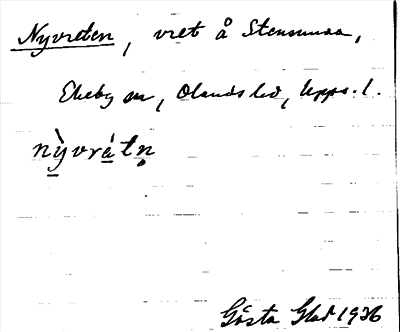 Nyvreten, vret å Stensunda,
Ekeby sn, Olands hd, Upps. l.
nỳvrátn̥
Gösta Glad 1936